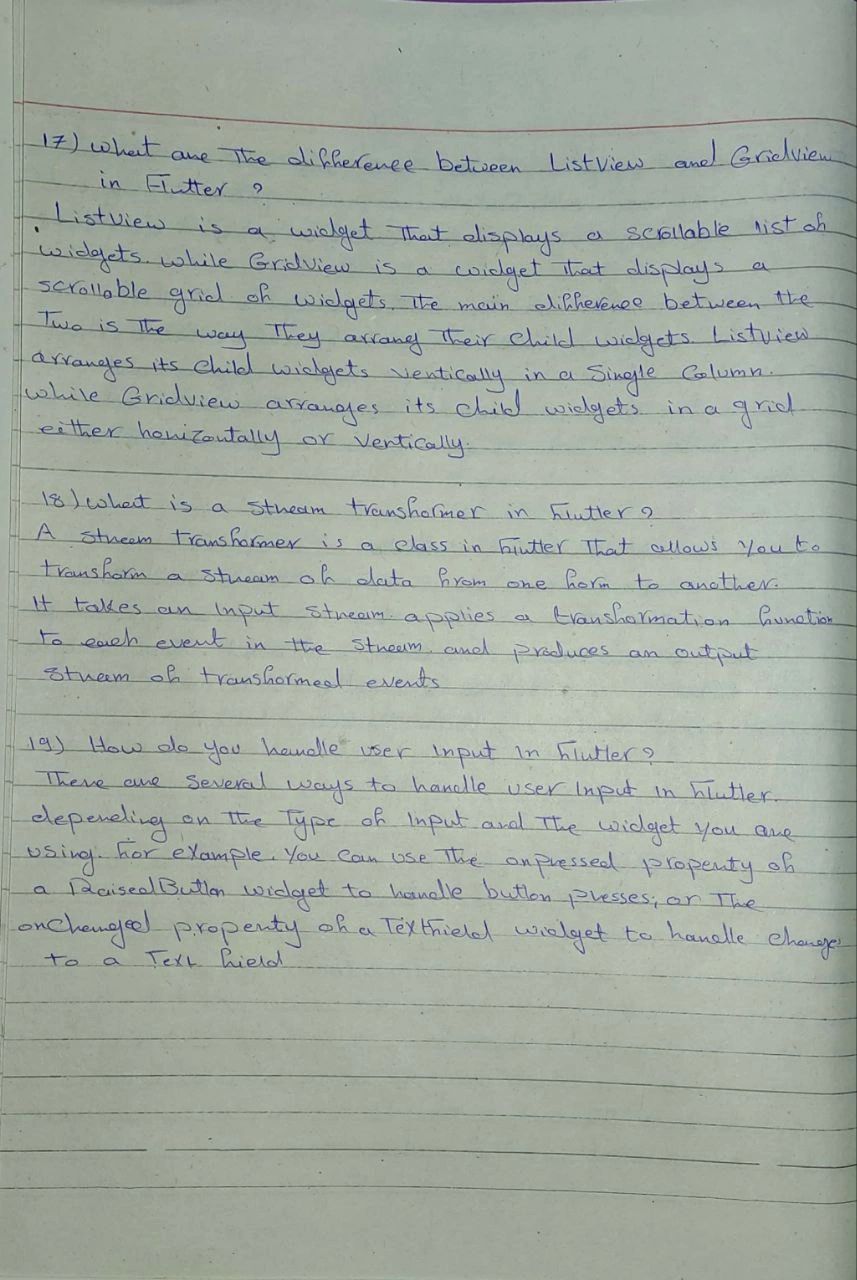 17) What are The difference between ListView and GridView
in Flutter ?
ListView is a widget That displays a scrollable list of
widgets. while GridView is a widget that displays a
scrollable grid of widgets. The main difference between the
Two is The way They arrang Their child widgets. Listview
arranges its child widgets vertically in a Single Column.
while Gridview arranges its child widgets in a grid
either horizontally or vertically.
18) What is a Stream transformer in Flutter ?
A stream transformer is a class in Flutter That allows You to
transform a stream of data from one form to another.
It takes an Input stream. applies a transformation function
to each event in the stream. and produces an output
stream of transformed events
19) How do you handle user Input In Flutter ?
There are several ways to handle user Input In Flutter.
depending on The Type of Input and The widget You are
using. For example. You can use The onpressed property of
a RaisedButton widget to handle button presses, or The
onChanged property of a Textfield widget to handle changes
to a Text field